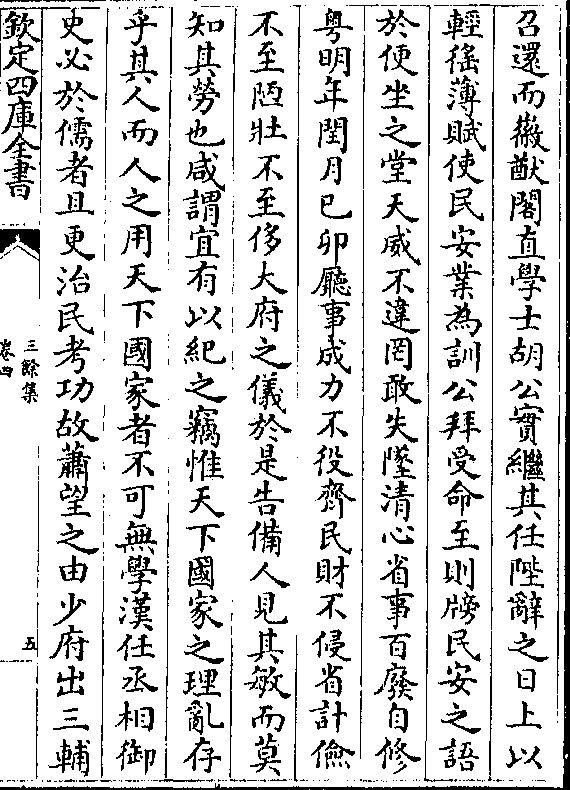 召還而徽猷閣直學士胡公實繼其任陛辭之日上以
輕徭薄賦使民安業為訓公拜受命至則牓民安之語
於便坐之堂天威不違罔敢失墜清心省事百廢自修
粤明年閏月已卯廳事成力不役齊民財不侵省計儉
不至陋壯不至侈大府之儀於是告備人見其敏而莫
知其勞也咸謂宜有以紀之竊惟天下國家之理亂存
乎其人而人之用天下國家者不可無學漢任丞相御
史必於儒者且更治民考功故蕭望之由少府出三輔
欽定四庫全書
三餘集
卷四
五